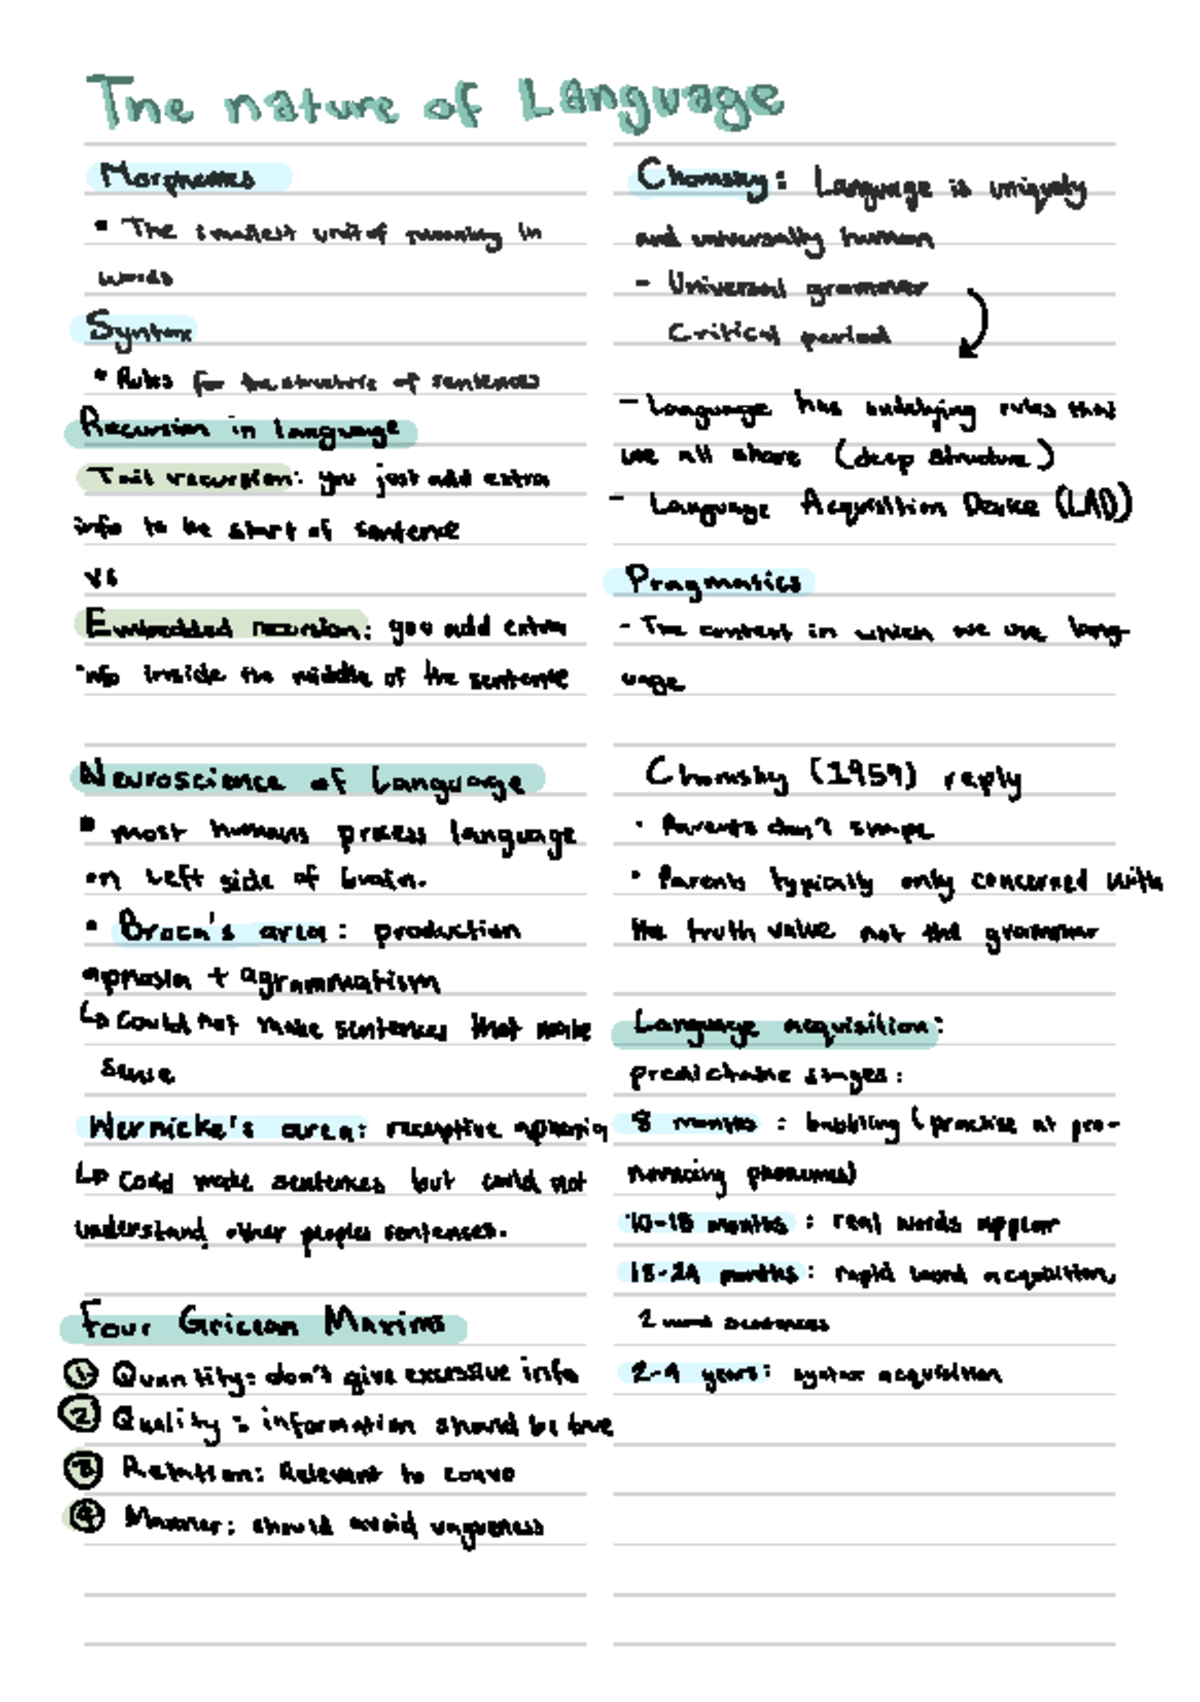 The nature of Language
Morphemes
• The smallest unit of meaning in
words
Syntax
• Rules for the structure of sentences
Recursion in language
Tail recursion: you just add extra
info to the start of sentence
vs
Embedded recursion: you add extra
info inside the middle of the sentence
Neuroscience of Language
• most humans process language
on left side of brain.
• Broca's area: production
aphasia + agrammatism
↳ could not make sentences that make
sense
Wernicke's area: receptive aphasia
↳ Could make sentences but could not
understand other peoples sentences.
Four Gricean Maxims
① Quantity: don't give excessive info
② Quality: information should be true
③ Relation: Relevant to convo
④ Manner: should avoid vagueness
Chomsky: Language is uniquely
and universally human
- Universal grammar
Critical period
- Language has underlying rules that
we all share (deep structure)
- Language Acquisition Device (LAD)
Pragmatics
- The context in which we use lang-
uage
Chomsky (1959) reply
• Parents don't shape
• Parents typically only concerned with
the truth value not the grammar
Language acquisition:
predictable stages:
8 months: babbling (practise at pro-
nouncing phonemes)
10-18 months: real words appear
18-24 months: rapid word acquisition,
2 word sentences
2-4 years: syntax acquisition